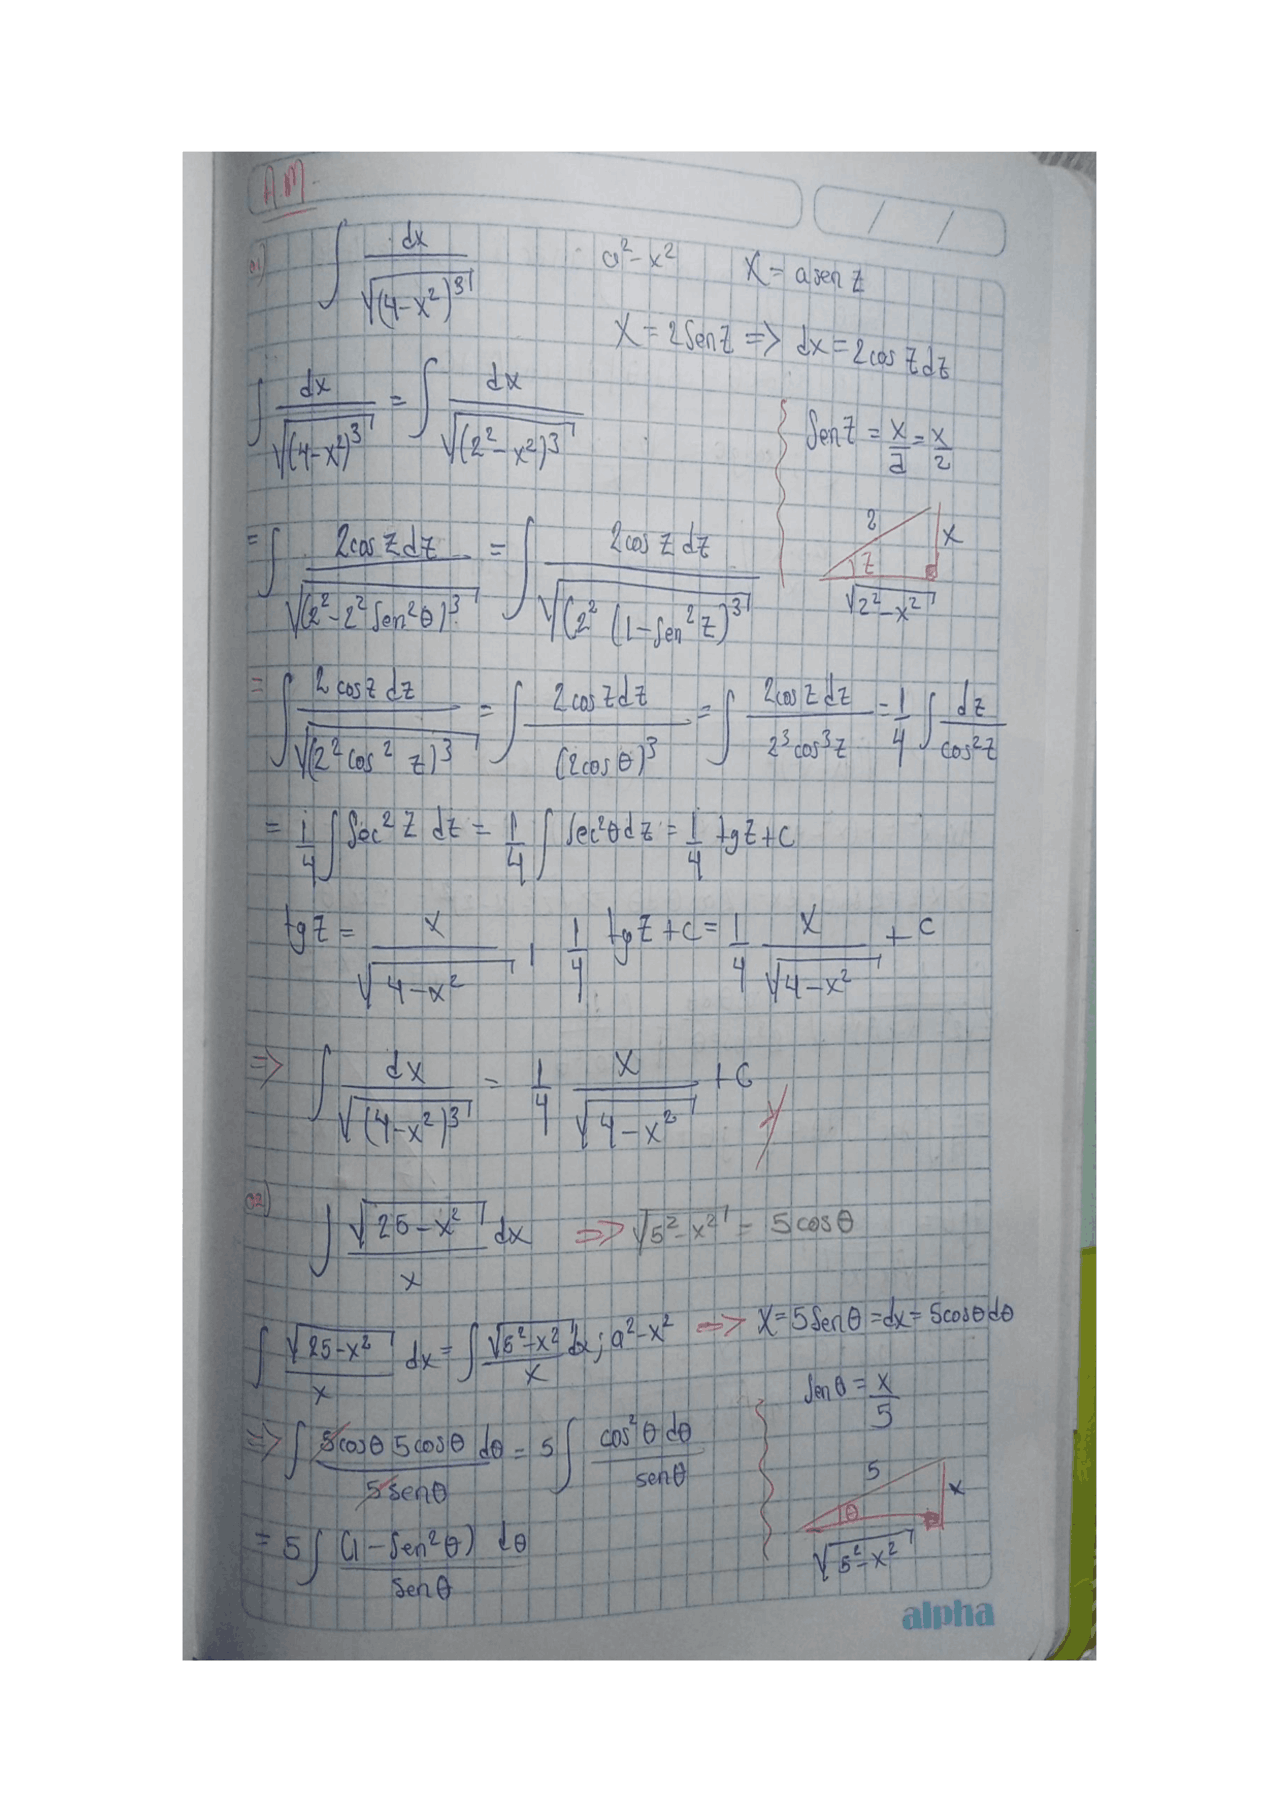 A.M.
01) ∫ dx/√(4-x²)³ a²-x² x = a sen z
x = 2 sen z => dx = 2 cos z dz
∫ dx/√(4-x²)³ = ∫ dx/√(2²-x²)³
sen z = x/a = x/2
2 x z √2²-x²
= ∫ 2cos z dz/√(2²-2² sen²θ)³ = ∫ 2cos z dz/√(2² (1-sen² z)³
= ∫ 2cos z dz/√(2² cos² z)³ = ∫ 2cos z dz/(2cos θ)³ = ∫ 2cos z dz/2³ cos³ z = 1/4 ∫ dz/cos² z
= 1/4 ∫ sec² z dz = 1/4 ∫ sec² θ dz = 1/4 tg z + c
tg z = x/√4-x² , 1/4 tg z + c = 1/4 x/√4-x² + c
=> ∫ dx/√(4-x²)³ = 1/4 x/√4-x² + c
02) ∫ √25-x²/x dx => √5²-x² = 5 cos θ
∫ √25-x²/x dx = ∫ √5²-x²/x dx ; a²-x² => x = 5 sen θ = dx = 5 cos θ dθ
sen θ = x/5
=> ∫ 5cos θ 5cos θ dθ/5 sen θ = 5 ∫ cos² θ dθ/sen θ
5 x θ √5²-x²
= 5 ∫ (1 - sen² θ) dθ/sen θ
alpha